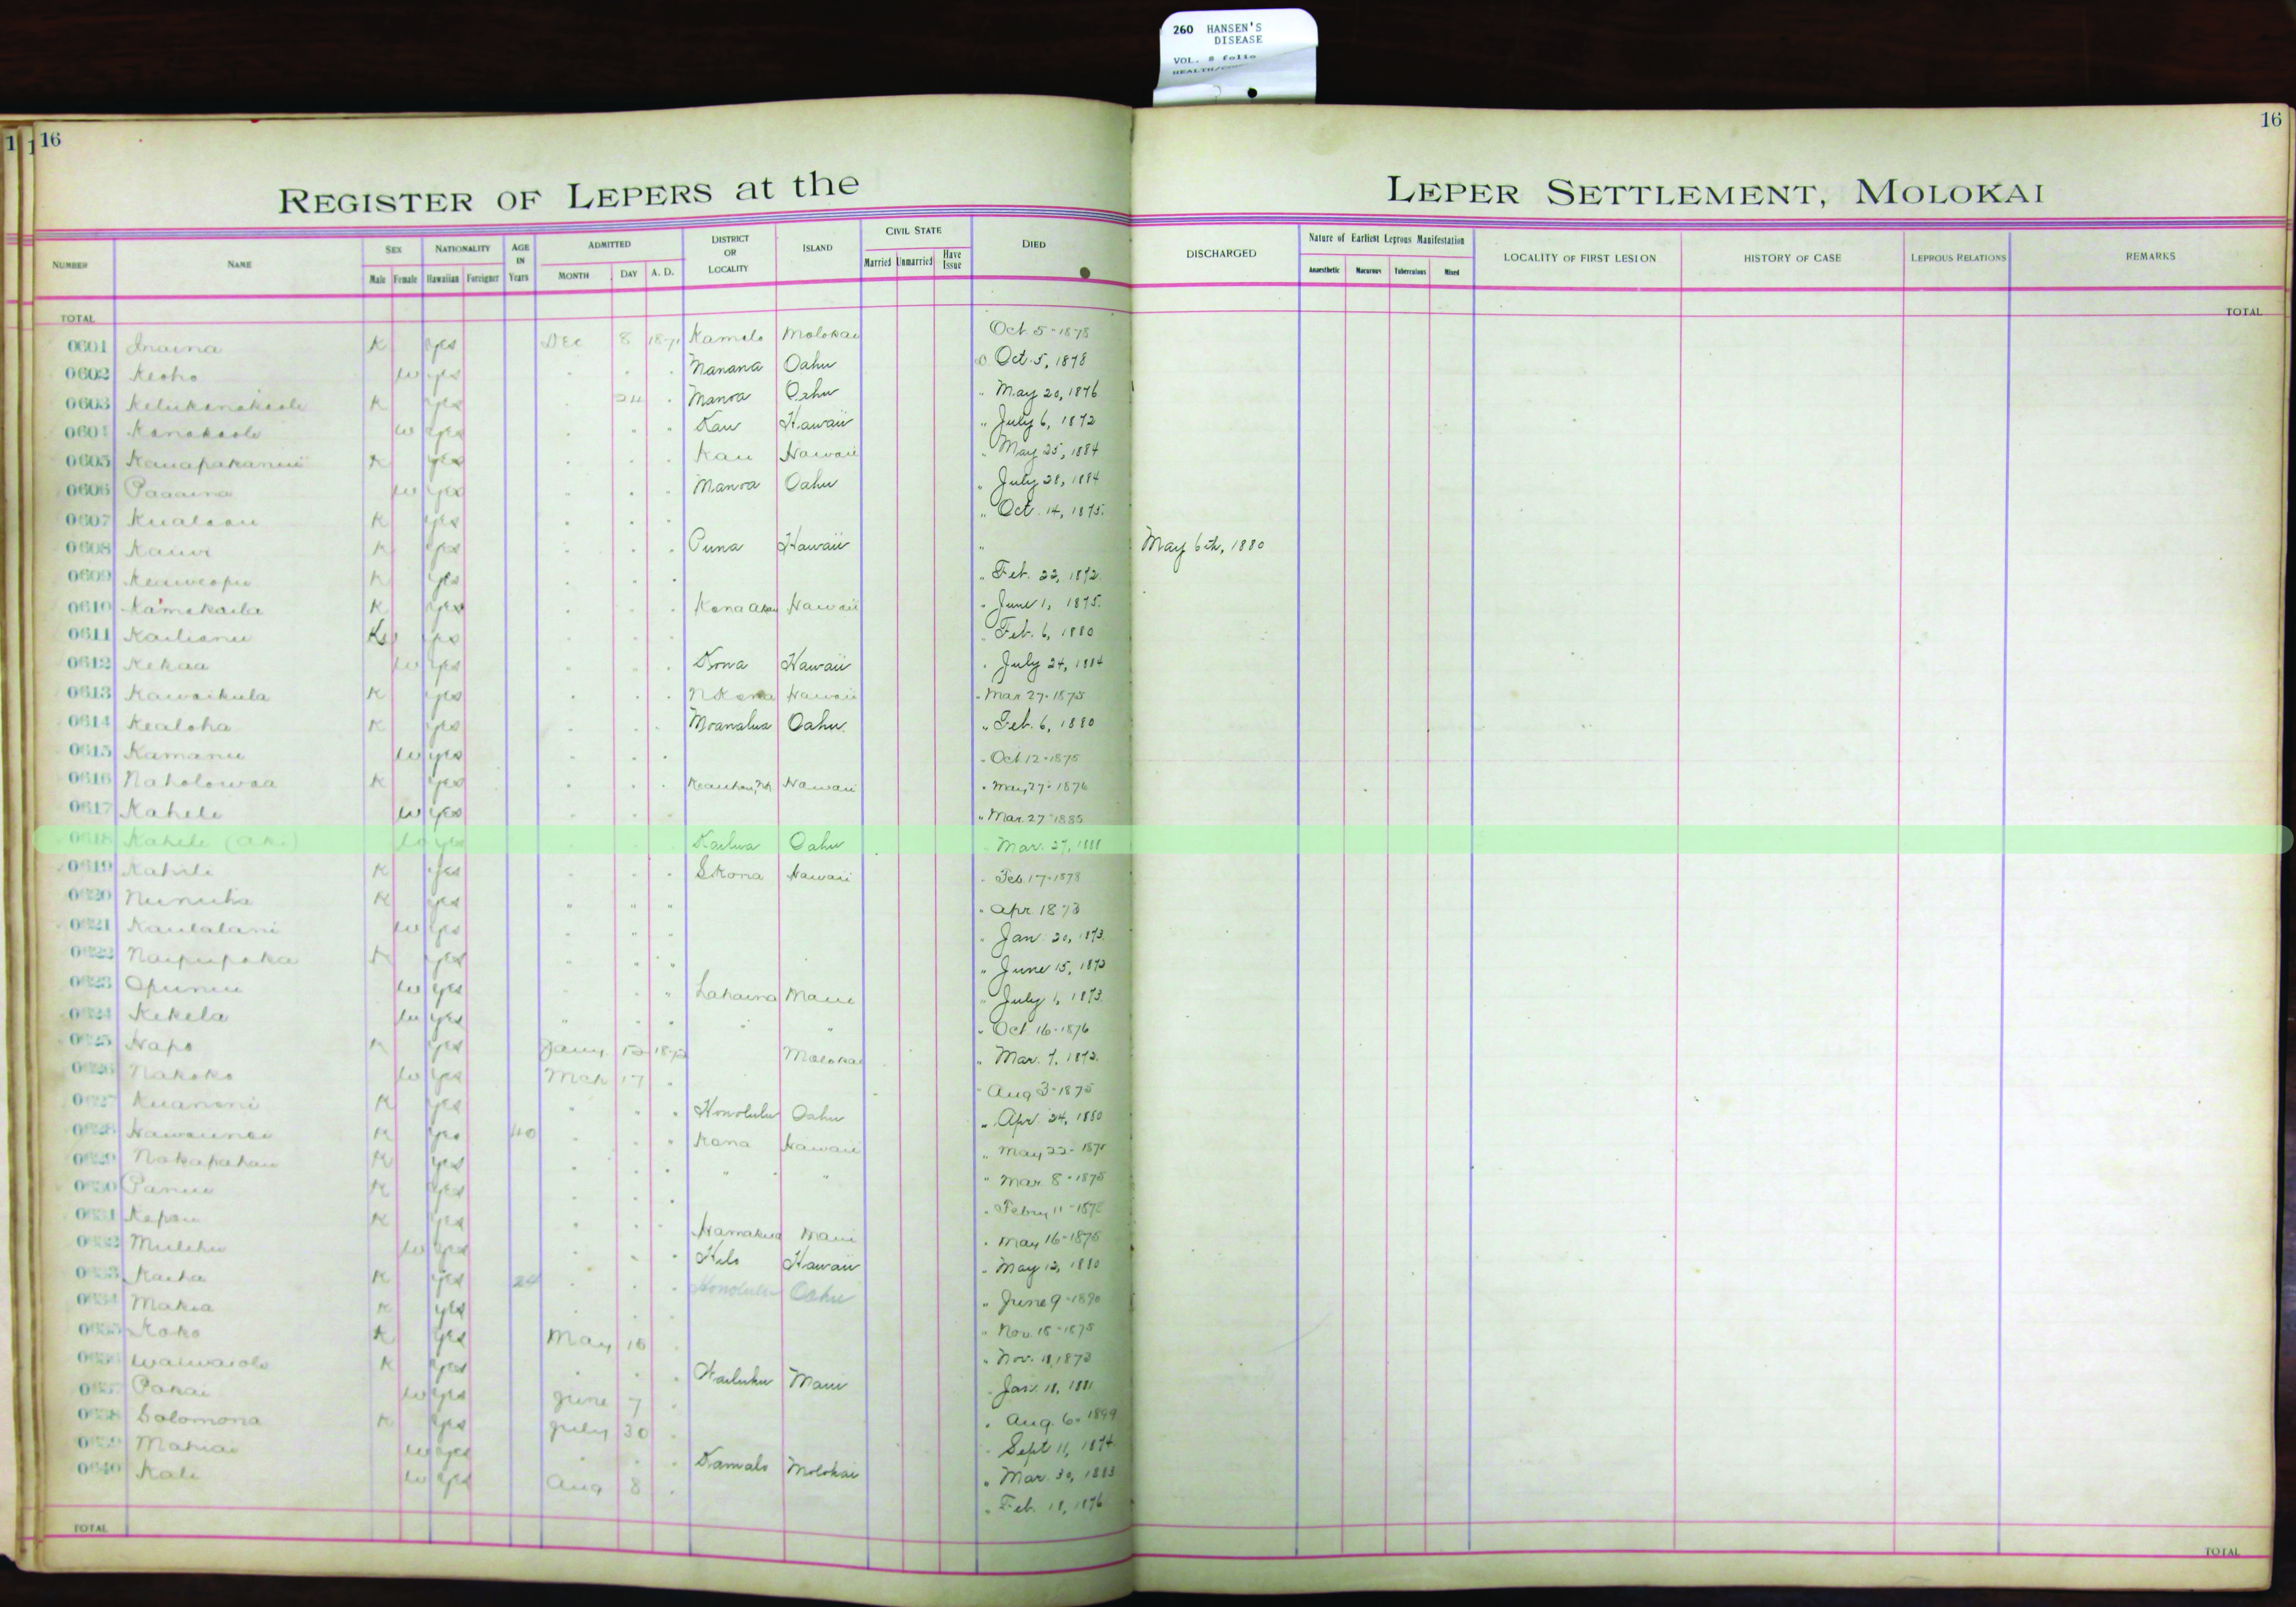 260 HANSEN'S
DISEASE
VOL. 8 folio
16
16
REGISTER OF LEPERS at the LEPER SETTLEMENT, MOLOKAI
NUMBER NAME SEX Male Female NATIONALITY Hawaiian Foreigner AGE IN Years ADMITTED MONTH DAY A. D. DISTRICT OR LOCALITY ISLAND CIVIL STATE Married Unmarried Have Issue DIED DISCHARGED Nature of Earliest Leprous Manifestation Anaesthetic Macurous Tuberculous Mixed LOCALITY OF FIRST LESION HISTORY OF CASE LEPROUS RELATIONS REMARKS
TOTAL TOTAL
0601 Inaina K yes Dec 8 Kamalo Molokai Oct 5-1878
0602 Keoho w yes Manana Oahu Oct. 5, 1878
0603 K yes 24 Manoa Oahu " May 20, 1876
Kanakaole w yes Kau Hawaii " July 6, 1872
0605 K yes Kau Hawaii " May 25, 1884
0606 Paaaina w yes Manoa Oahu " July 28, 1884
0607 K yes " Oct. 14, 1875.
0608 K yes Puna Hawaii " May 6th, 1880
0609 Keaweopu K yes " Feb. 22, 1872.
0610 Kamakaila K yes Hawaii " June 1, 1875.
0611 Kailianu yes Feb. 6, 1880
0612 Kekaa w yes Kona Hawaii " July 24, 1884
0613 Kawaikula K yes Hawaii " Mar 27-1875
0614 Kealoha K yes Moanalua Oahu. " Feb. 6, 1880
0615 Kamanu w yes " Oct 12-1875
0616 Naholowaa K yes Hawaii " May 27-1876
0617 Kahele w yes " Mar. 27-1885
0618 Kahele w yes Kailua Oahu Mar. 27, 1888
0619 Kahili K yes S Kona Hawaii " Feb. 17-1878
0620 K yes " " " " Apr 1873
0621 Kaulalani w yes " Jan. 20, 1873.
Naipupaka K yes " June 15, 1873
Opunui w yes Lahaina Maui " July 1, 1873.
Kekela w yes " " " Oct 16-1876
Hapo K yes Jany Molokai " Mar. 7, 1872.
Nakoko w yes Mch 17 " Aug 3-1875
Kuanoni K yes Honolulu Oahu " Apr. 24, 1880
K yes 40 Kona Hawaii " May 22-
Nakapahau K yes " " " Mar. 8-1875
Panui K yes " Febry 11-
Kapau K yes Hamakua Maui " May 16-1875
Mulehu w yes Hilo Hawaii " May 12, 1880
Kaiha K yes Honolulu Oahu " June 9-1890
Makia K yes " Nov. 18-1875
Koko K yes May 18 " Nov. 18, 1873
Waiwaiole K yes Wailuku Maui Jan. 18, 1881
Pakai w yes June 7 " Aug. 6-1899
Solomona K yes July 30 Sept 11, 1874
Mahiai w yes Kamalo Molokai " Mar. 30, 1883
0640 Kale w yes Aug 8 " Feb. 18, 1876
TOTAL TOTAL